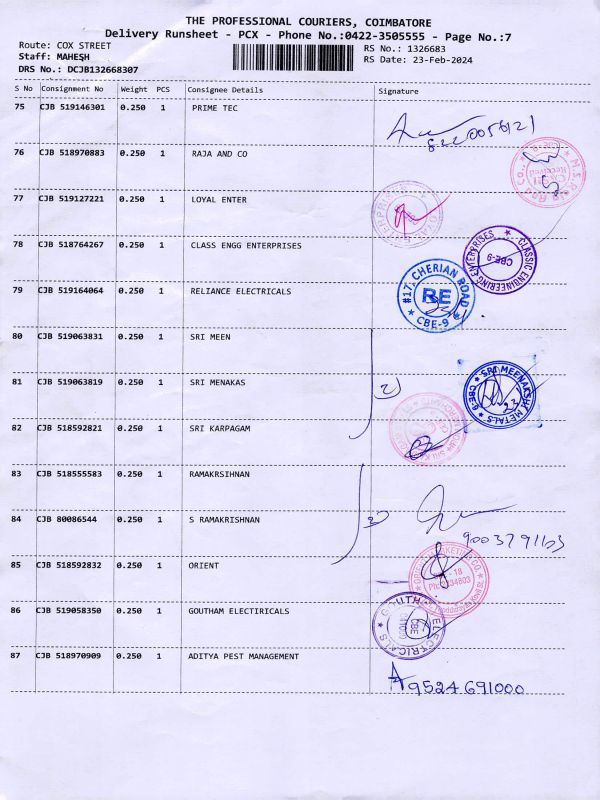 THE PROFESSIONAL COURIERS, COIMBATORE
Delivery Runsheet - PCX - Phone No.:0422-3505555 - Page No.:7
Route: COX STREET
RS No.: 1326683
Staff: MAHESH
RS Date: 23-Feb-2024
DRS No.: DCJB132668307
S No Consignment No Weight PCS Consignee Details Signature
75 CJB 519146301 0.250 1 PRIME TEC
76 CJB 518970883 0.250 1 RAJA AND CO
77 CJB 519127221 0.250 1 LOYAL ENTER
78 CJB 518764267 0.250 1 CLASS ENGG ENTERPRISES
CLASSIC ENGINEERING ENTERPRISES
CBE-9
79 CJB 519164064 0.250 1 RELIANCE ELECTRICALS
#17, CHERIAN ROAD
RE
CBE-9
80 CJB 519063831 0.250 1 SRI MEEN
81 CJB 519063819 0.250 1 SRI MENAKAS
2)
SRI MEENAKSHI METALS
CBE-9
82 CJB 518592821 0.250 1 SRI KARPAGAM
83 CJB 518555583 0.250 1 RAMAKRSIHNAN
84 CJB 80086544 0.250 1 S RAMAKRISHNAN
9003791103
85 CJB 518592832 0.250 1 ORIENT
86 CJB 519058350 0.250 1 GOUTHAM ELECTIRICALS
CBE
87 CJB 518970909 0.250 1 ADITYA PEST MANAGEMENT
9524691000